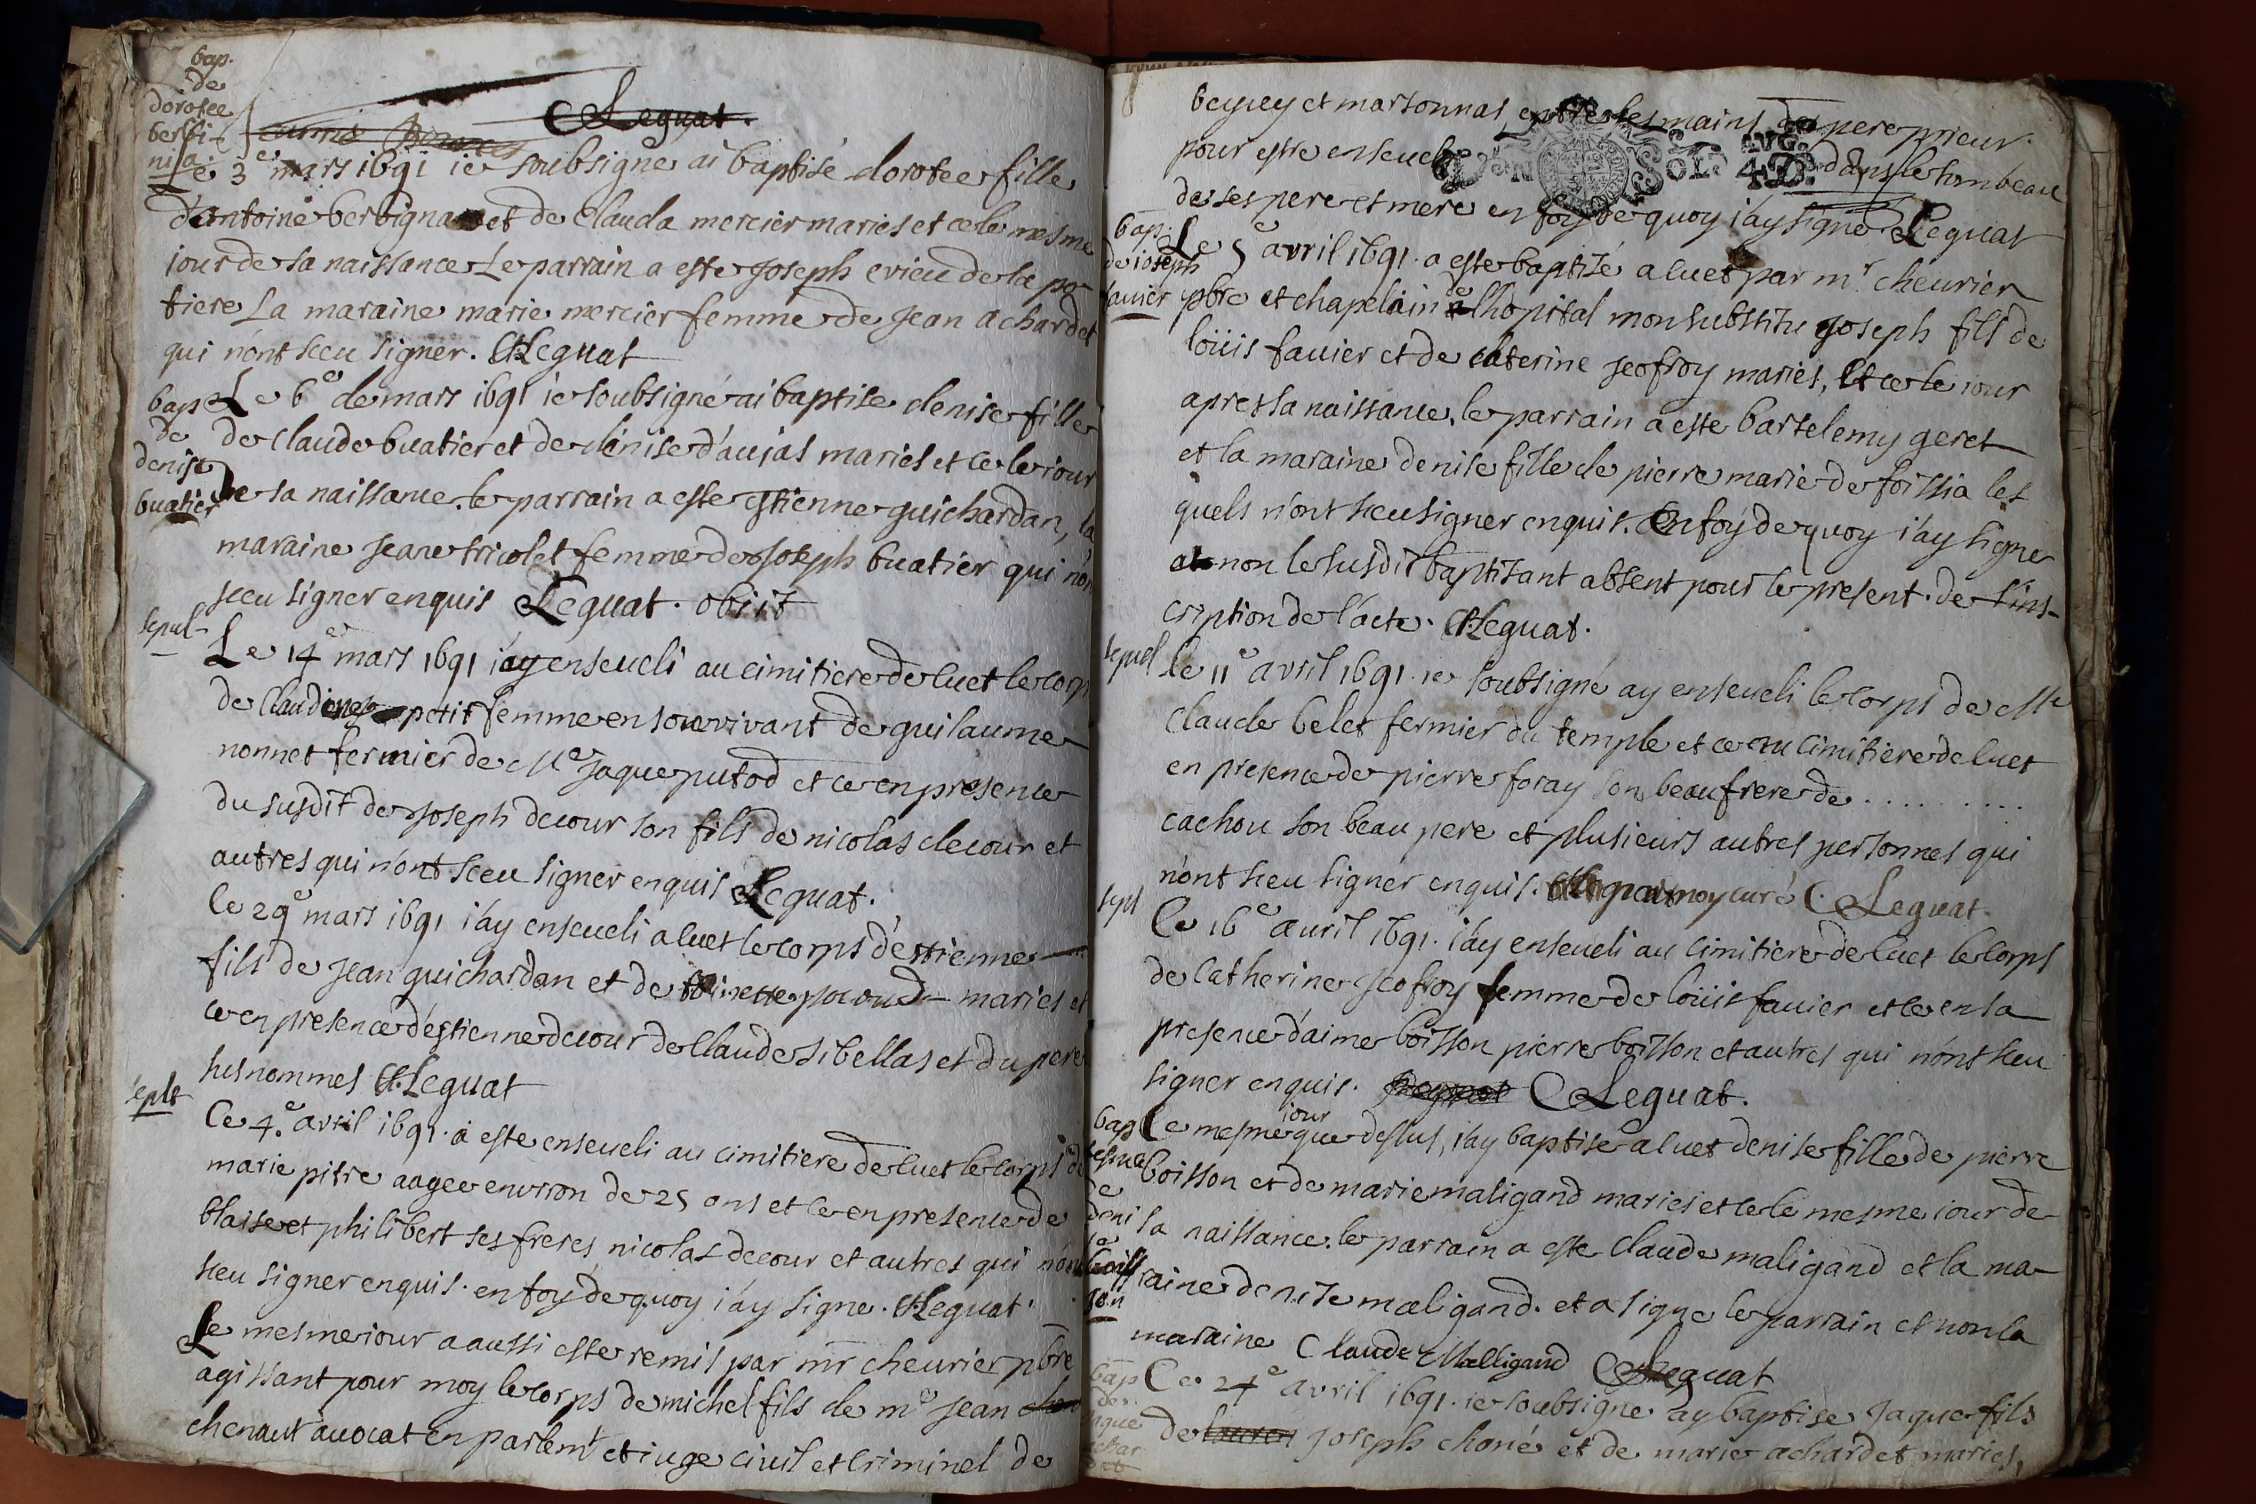 bap.
de
dorotee
berbi-
nia.
Leguat.
Le 3e mars 1691 ie soubsigné ai baptisé dorotee fille
d'antoine berbigna et de Clauda mercier mariés et ce le mesme
iour de sa naissance Le parrain a esté Joseph evieu de la po-
tiere La maraine marie mercier femme de Jean achardet
qui n'ont sceu signer. Leguat
bap
de
denise
buatier
Le 6e de mars 1691 ie soubsigné ai baptise denise fille
de claude buatier et de denise d'aujas mariés et ce le iour
de sa naissance. le parrain a este estienne guichardan, la
maraine Jeane tricolet femme de Joseph buatier qui n'ont
sceu signer enquis Leguat. obiit
sepul-
Le 14e mars 1691 i'ay enseueli au cimitiere de luet le corps
de Claudine petit femme en son vivant de guilaume
nonnet fermier de Me Jaque putod et ce en presence
du susdit de Joseph decour son fils de nicolas decour et
autres qui n'ont sceu signer enquis Leguat.
le 29e mars 1691 i'ay enseueli a luet le corps d'estienne
fils de Jean guichardan et de mariés et
ce en presence d'estienne decour de Claude sibellas et du pere
susnommes Leguat
seplt
Ce 4.e avril 1691. a este enseueli au cimitiere de luet le corps de
marie pitre aagee environ de 25 ans et ce en presence de
blaise et philibert ses freres nicolas decour et autres qui n'ont
sceu signer enquis. en foy de quoy i'ay signe. Leguat.
Le mesme iour a aussi este remis par mr cheurier pbre
agissant pour moy le corps de michel fils de me Jean
chenaut auocat en parlemt et iuge civil et criminel de
beyrey et marsonnas entre les mains du pere prieur.
pour estre enseueli dans le tombeau
de ses pere et mere en foy de quoy i'ay signe Leguat
bap.
de ioseph
fauier
Le 5e avril 1691. a este baptizé a luet par mr. cheurier
pbre et chapelain de lhopital mon substitu Joseph fils de
loüis fauier et de caterine Jeofroy mariés, Et ce le iour
apres sa naissance. le parrain a este bartelemy geret
et la maraine denise fille de pierre marié de foissia les
quels n'ont sceu signer enquis. En foy de quoy i'ay signe
et non le susdit baptisant absent pour le present. de l'ins-
cription de l'acte. Leguat.
sepul
le 11e avril 1691. ie soubsigné ay enseueli le corps de Me
Claude belet fermier du temple et ce au cimitiere de luet
en presence de pierre foray son beaufrere de . . . . . . . . . .
cachou son beau pere et plusieurs autres personnes qui
n'ont sceu signer enquis. moy curé Leguat.
sepl
Ce 16e auril 1691. i'ay enseueli au cimitiere de luet le corps
de Catherine Jeofroy femme de loüis fauier et ce en la
presence d'aime boisson pierre boisson et autres qui n'ont sceu
signer enquis. Leguat.
bap
de
deni
se
boiss
son
Le mesme iour que dessus, i'ay baptise a luet denise fille de pierre
boisson et de marie maligand mariés et ce le mesme iour de
sa naissance. le parrain a este Claude maligand et la ma-
raine denise maligand. et a signe le parrain et non la
maraine Claude Malligand Leguat
bap
de
Jaque
Ce 24e avril 1691. ie soubsigne ay baptise Jaque fils
de Joseph choné et de marie achardet mariés,